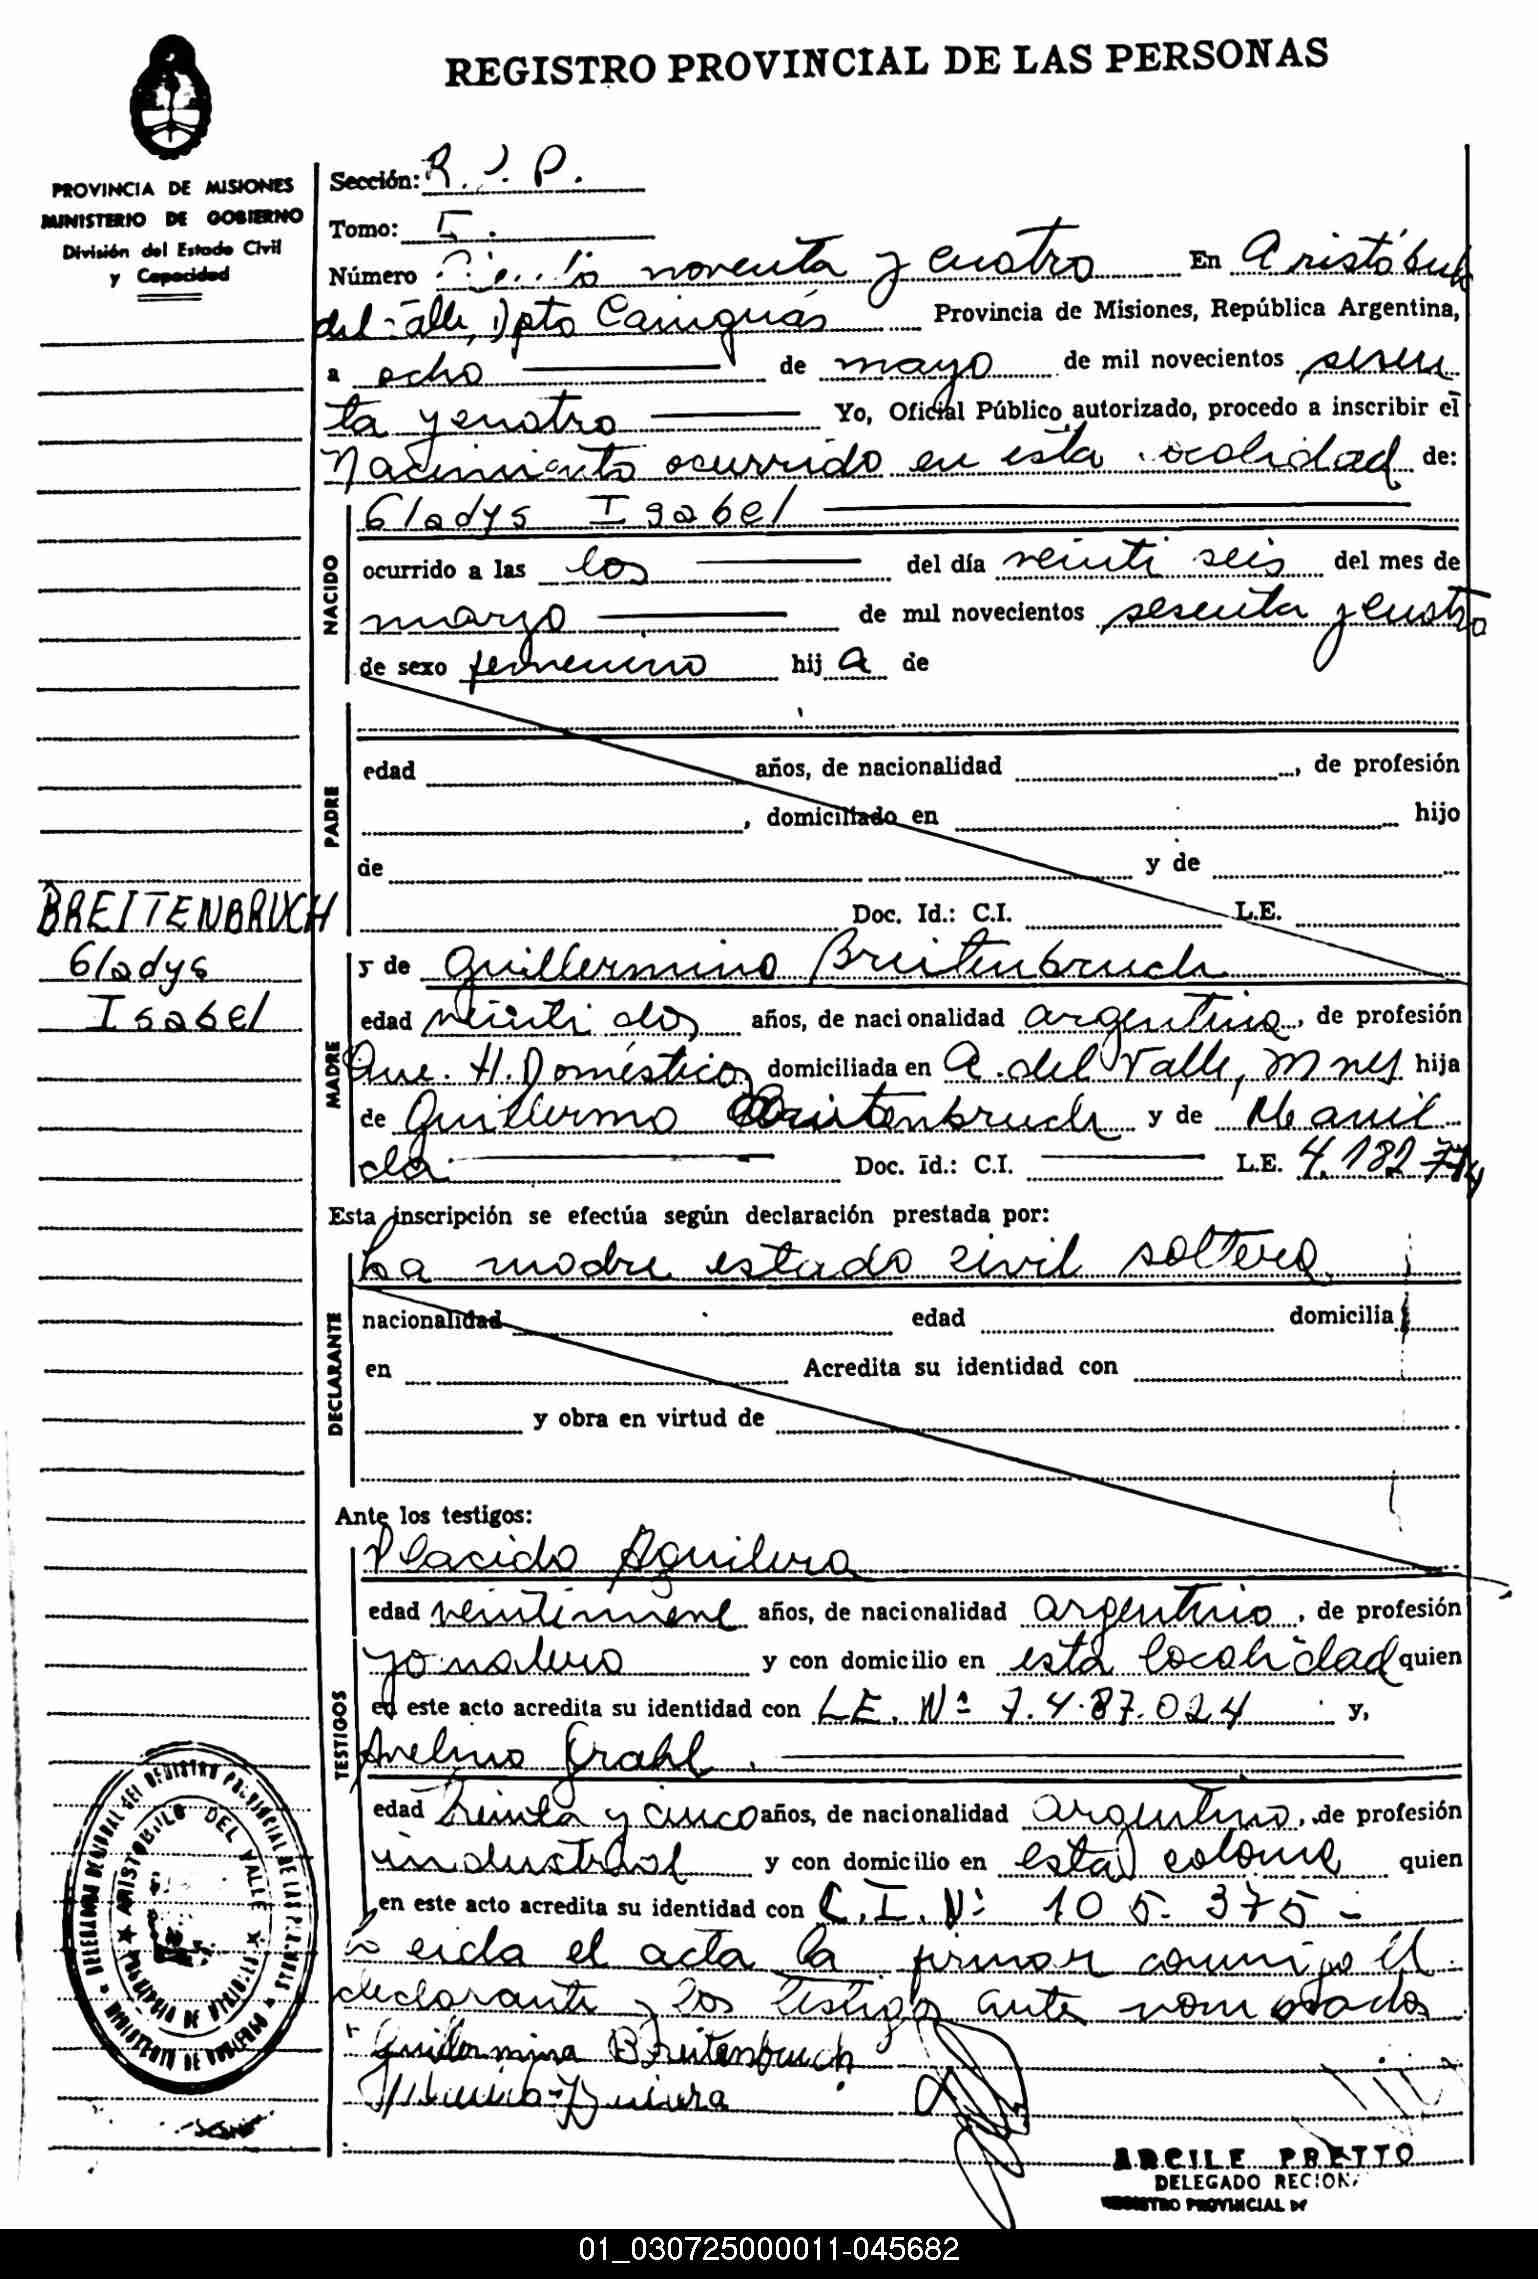 REGISTRO PROVINCIAL DE LAS PERSONAS
PROVINCIA DE MISIONES
MINISTERIO DE GOBIERNO
División del Estado Civil
y Capacidad
Sección: R.
Tomo: I.
Número noventa y cuatro En Aristóbulo
del Valle, Dpto Cainguás Provincia de Misiones, República Argentina,
a ocho de mayo de mil novecientos sesen
ta y cuatro Yo, Oficial Público autorizado, procedo a inscribir el
Nacimiento ocurrido en esta localidad de:
Gladys Isabel
NACIDO
ocurrido a las los del día veinti seis del mes de
marzo de mil novecientos sesenta y cuatro
de sexo femenino hija de
PADRE
edad años, de nacionalidad , de profesión
, domiciliado en hijo
de y de
Doc. Id.: C.I. L.E.
BREITENBRUCH
Gladys
Isabel
MADRE
y de Guillermina Breitenbruch
edad veinti dos años, de nacionalidad argentina, de profesión
Que. H. Domésticos domiciliada en A. del Valle, Mnes hija
de Guillermo Breitenbruch y de
da Doc. Id.: C.I. L.E. 4.182
Esta inscripción se efectúa según declaración prestada por:
La madre estado civil soltera
DECLARANTE
nacionalidad edad domicilia
en Acredita su identidad con
y obra en virtud de
Ante los testigos:
TESTIGOS
Placido Aguilera
edad veintinueve años, de nacionalidad argentino, de profesión
jornalero y con domicilio en esta localidad quien
en este acto acredita su identidad con L.E. Nº 7.487.024 y,
Avelino Grahl.
edad treinta y cinco años, de nacionalidad argentino, de profesión
industrial y con domicilio en esta colonia quien
en este acto acredita su identidad con C.I. Nº 105.375-
Leida el acta la firman conmigo el
declarante y los testigos ante nombrados
Guillermina Breitenbruch
DELEGACION REGIONAL DEL REGISTRO PROVINCIAL DE LAS PERSONAS
MINISTERIO DE GOBIERNO
ARISTOBULO DEL VALLE
PROVINCIA DE MISIONES
ARCILE PRETTO
DELEGADO REGIONAL
REGISTRO PROVINCIAL DE
01_030725000011-045682